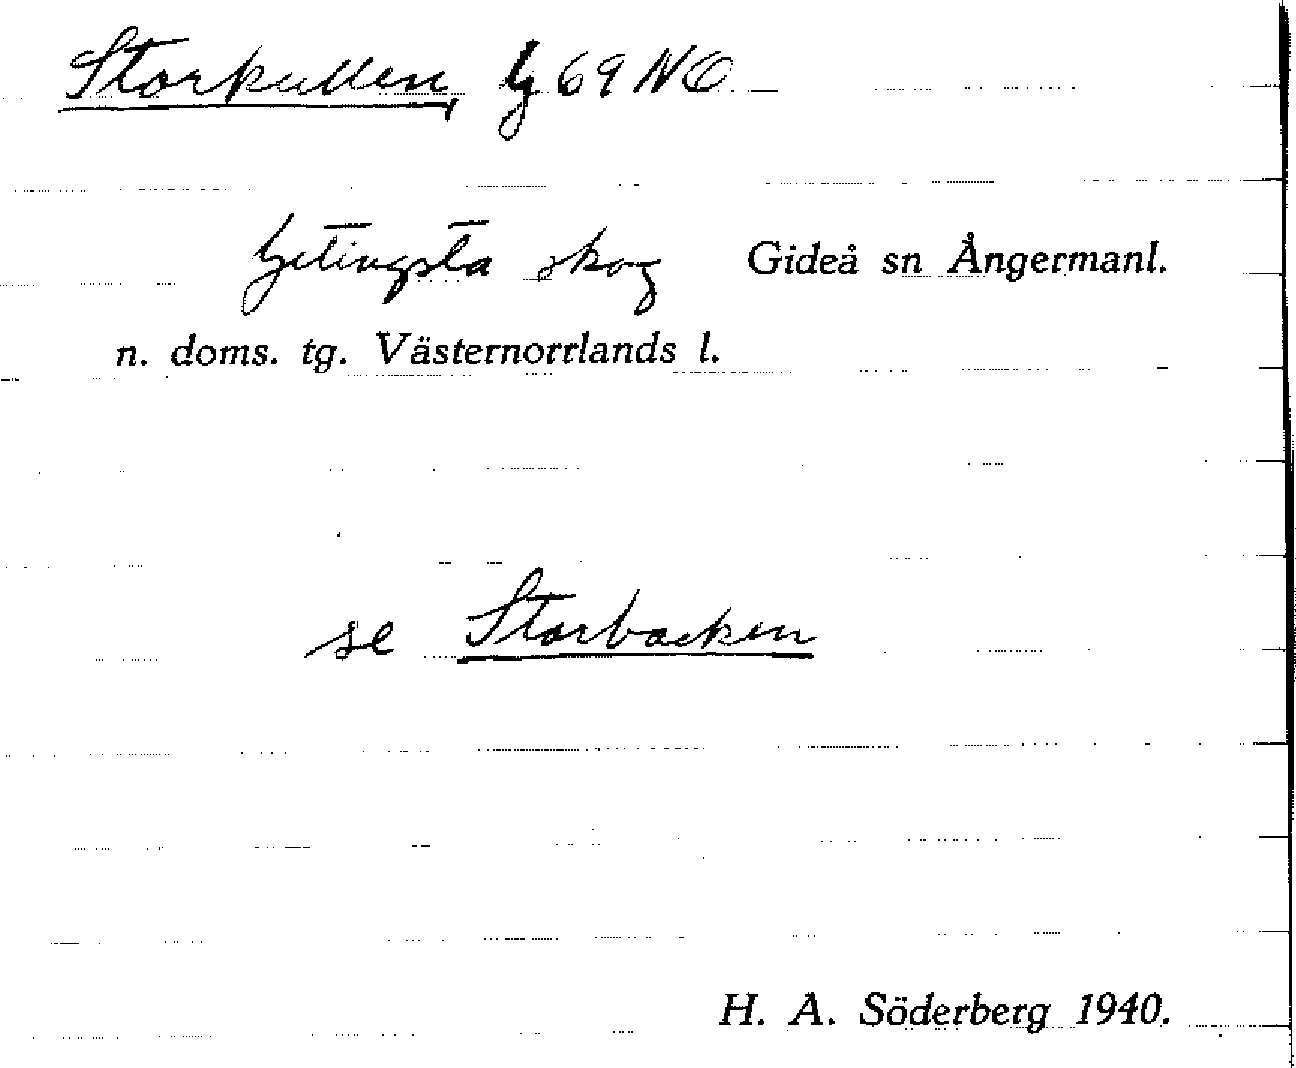 Storkullen, lg 69 NO
Getingsta skog Gideå sn Ångermanl.
n. doms. tg. Västernorrlands l.
se Storbacken
H. A. Söderberg 1940.